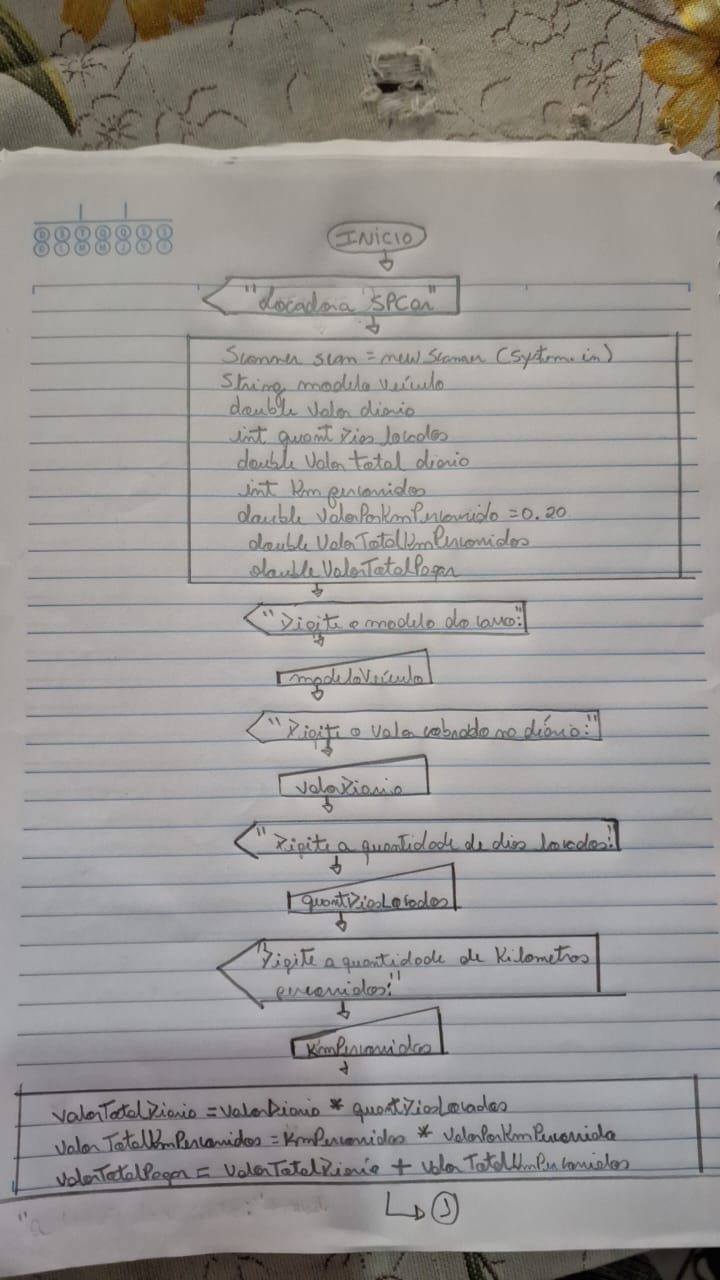 INÍCIO
"Locadora SPCar"
Scanner scan = new Scanner (System.in)
String modelo veículo
double valor diaria
int quant Dias locados
double Valor total diaria
int Km percorridos
double ValorPorKmPercorrido = 0.20
double ValorTotalKmPercorridos
double ValorTotalPagar
"Digite o modelo do carro:"
modeloVeículo
"Digite o valor cobrado na diária:"
valorDiaria
"Digite a quantidade de dias locados:"
quantDiasLocados
"Digite a quantidade de Kilometros
percorridos:"
KmPercorridos
valorTotalDiaria = valorDiaria * quantDiasLocados
valorTotalKmPercorridos = KmPercorridos * ValorPorKmPercorrido
valorTotalPagar = valorTotalDiaria + valorTotalKmPercorridos
1